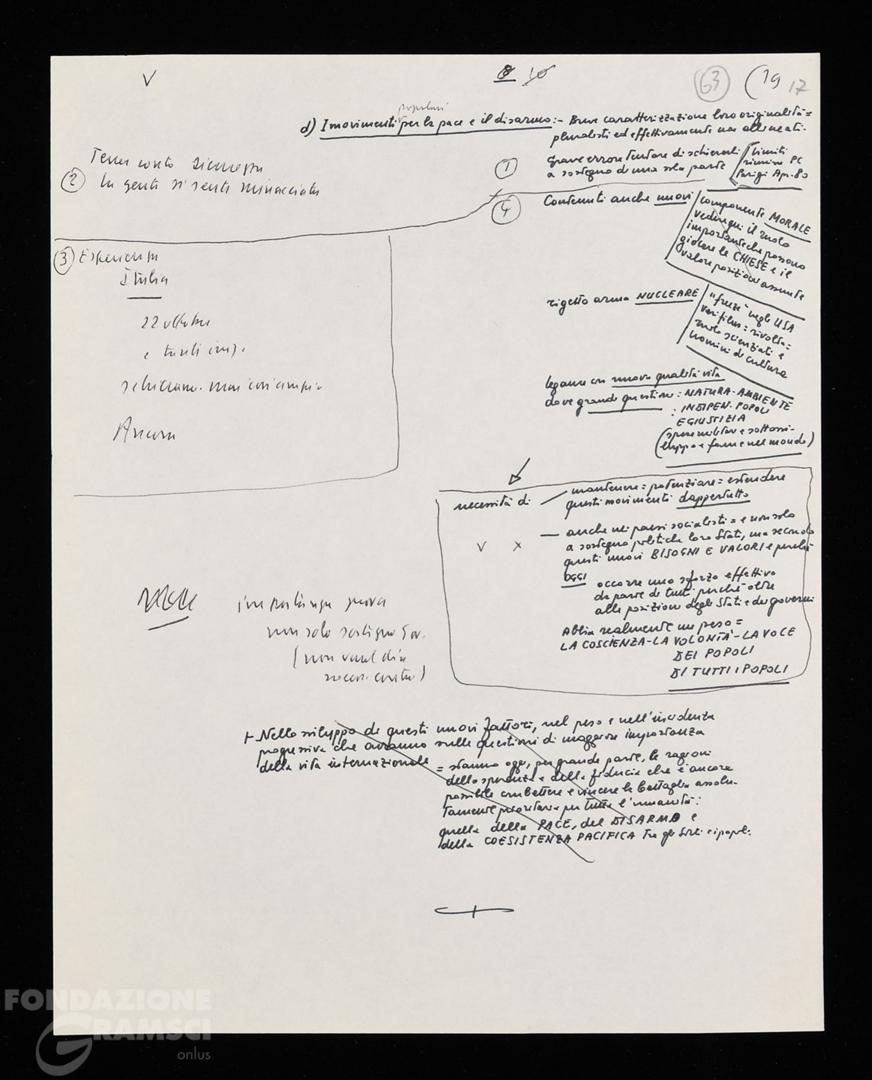 V
8 10
63
19
17
popolari
d) I movimenti per la pace e il disarmo:- Breve caratterizzazione loro originalità=
pluralisti ed effettivamente non allineati.
① Grave errore tentare di schierarli
a sostegno di una sola parte
limiti
riunione PC
Parigi Apr. 80
② Tener conto sicurezza
la gente si sente minacciata
④ Contenuti anche nuovi
componente MORALE
vedi qui il ruolo
importante che possono
giocare le CHIESE e il
valore posizioni assunte
③ Esperienza
Italia
22 ottobre
e tanti
Ancora
rigetto arma NUCLEARE
"freeze" negli USA
rivolta=
ruolo scienziati e
uomini di cultura
legame con nuova qualità vita
dove grande questione: NATURA-AMBIENTE
: INDIPEN. POPOLI
E GIUSTIZIA
(spese militari e sottosvi-
luppo e fame nel mondo)
necessità di
mantenere = potenziare = estendere
questi movimenti dappertutto
V X
— anche nei paesi socialisti = e non solo
a sostegno politiche loro Stati, ma secondo
questi nuovi BISOGNI E VALORI e perché
OGGI occorre uno sforzo effettivo
da parte di tutti perché oltre
alle posizioni degli Stati e dei governi
Abbia realmente un peso=
LA COSCIENZA-LA VOLONTÀ-LA VOCE
DEI POPOLI
DI TUTTI I POPOLI
importanza nuova
non solo sostegno gov.
(non
+ Nello sviluppo di questi nuovi fattori, nel peso e nell'incidenza
progressiva che avranno sulle questioni di maggiore importanza
della vita internazionale = stanno oggi, per grande parte, le ragioni
della speranza e della fiducia che è ancora
possibile combattere e vincere la battaglia assolu-
tamente prioritaria per tutta l'umanità:
quella della PACE, del DISARMO e
della COESISTENZA PACIFICA tra gli Stati e i popoli.
FONDAZIONE
GRAMSCI
onlus